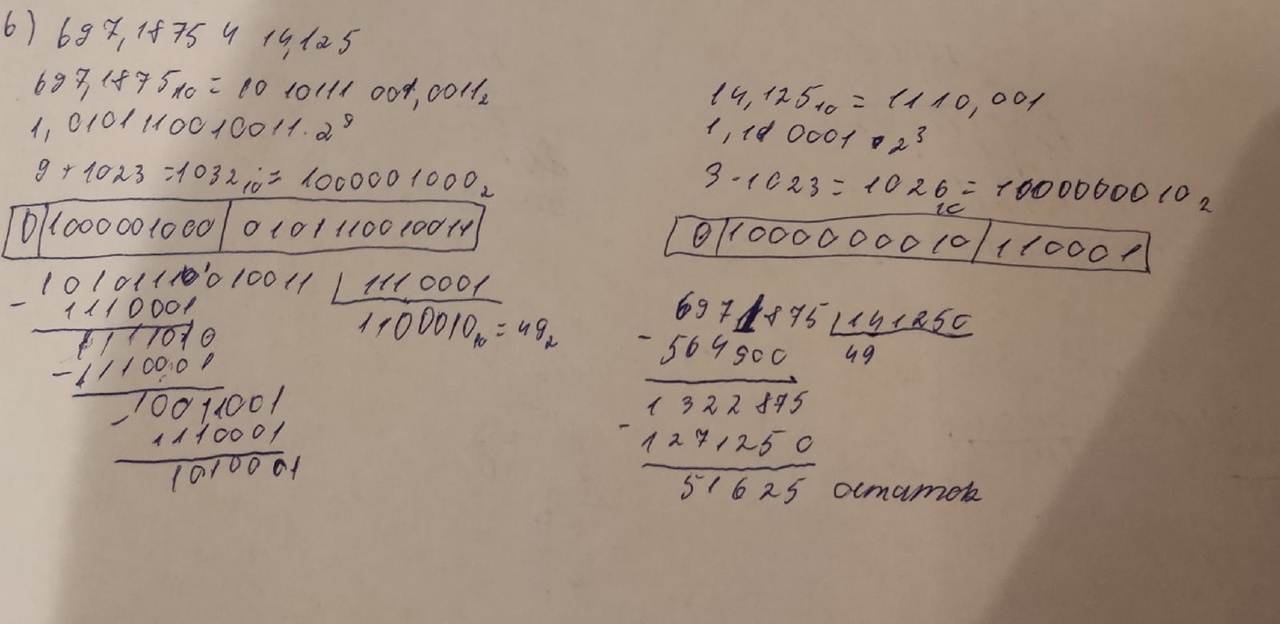 б) 697,1875 и 14,125
697,1875₁₀ = 10 10111 001,0011₂
1, 0101110010011 · 2⁹
9 + 1023 = 1032₁₀ = 10000001000₂
0 1000001000 0101110010011
10101110010011 1110001
- 1110001
1100010₁₀ = 49₂
1111010
- 1110001
10011001
- 1110001
1010001
14,125₁₀ = 1110,001
1,110001 · 2³
3 - 1023 = 1026₁₀ = 10000000010₂
0 10000000010 110001
6971875 141250
- 564900 49
1322875
- 1271250
51625 остаток